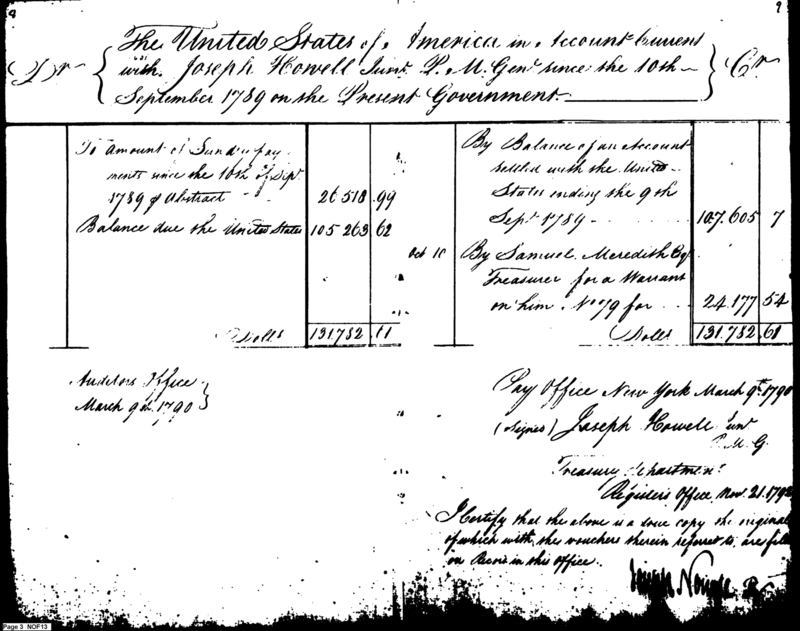 9
The United States of America in Account Current
Dr with Joseph Howell Junr. P. M. Genl since the 10th Cr
September 1789 on the Present Government
To Amount of Sundry pay-
ments since the 10th of Sepr
1789 Abstract 26518.99
Balance due the United States 105 263 62
Dolls 131.782.61
By Balance of an Account
settled with the United
States ending the 9th
Sept 1789 107.605 7
Oct 10 By Samuel Meredith Esqr
Treasurer for a Warrant
on him No 79 for 24.177 54
Dolls 131.782 61
Auditors Office
March 9th 1790
Pay Office New York March 9th 1790
(Signed) Joseph Howell Junr
P. M. G.
Treasury department
Registers Office Nov. 21. 1792
I Certify that the above is a true copy the original
of which with the vouchers therein referred to, are filed
on Record in this Office.
Joseph Nourse R
Page 3 NOF13